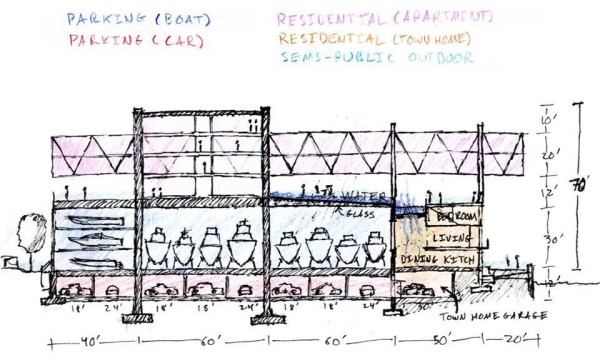 PARKING (BOAT) RESIDENTIAL (APARTMENT)
PARKING (CAR) RESIDENTIAL (TOWN HOME)
SEMI-PUBLIC OUTDOOR
10'
20'
WATER
12'
70'
GLASS
BEDROOM
LIVING
30'
DINING KITCH
12'
18' 24' 18' 18' 24' 18' 18' 24' 30'
TOWN HOME GARAGE
40' 60' 60' 50' 20'